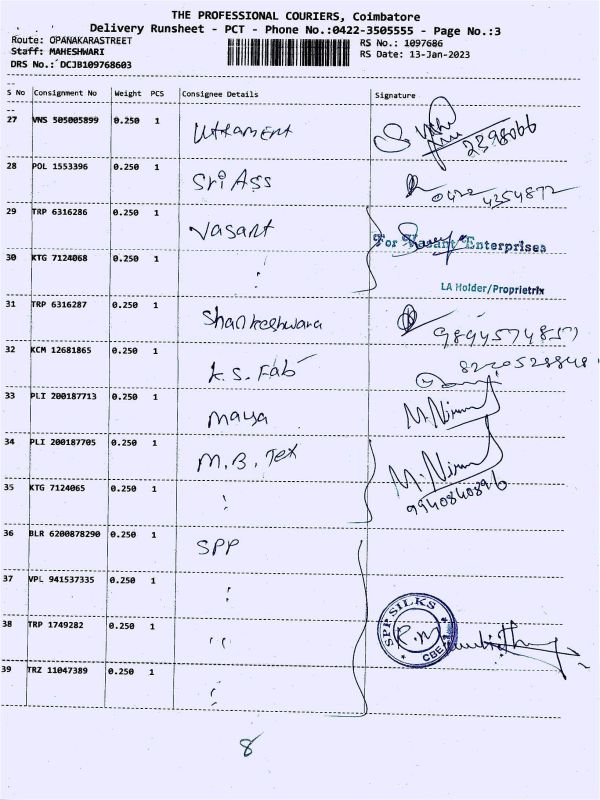 THE PROFESSIONAL COURIERS, Coimbatore
Delivery Runsheet - PCT - Phone No.:0422-3505555 - Page No.:3
Route: OPANAKARASTREET RS No.: 1097686
Staff: MAHESHWARI RS Date: 13-Jan-2023
DRS No.: DCJB109768603
S No Consignment No Weight PCS Consignee Details Signature
27 VNS 505005899 0.250 1 2398066
28 POL 1553396 0.250 1 Sri Ass 0422 4354872
29 TRP 6316286 0.250 1 Vasant
For Vasant Enterprises
30 KTG 7124068 0.250 1 "
LA Holder/Proprietrix
31 TRP 6316287 0.250 1 Shankeshwara
32 KCM 12681865 0.250 1 K.S. Fab
33 PLI 200187713 0.250 1 Maya M.Nirmal
34 PLI 200187705 0.250 1 M.B. Tex M.Nirmal
35 KTG 7124065 0.250 1 " 9940840896
36 BLR 6200878290 0.250 1 SPP
37 VPL 941537335 0.250 1 "
38 TRP 1749282 0.250 1 " SPP SILKS R.M CBE
39 TRZ 11047389 0.250 1 "
8